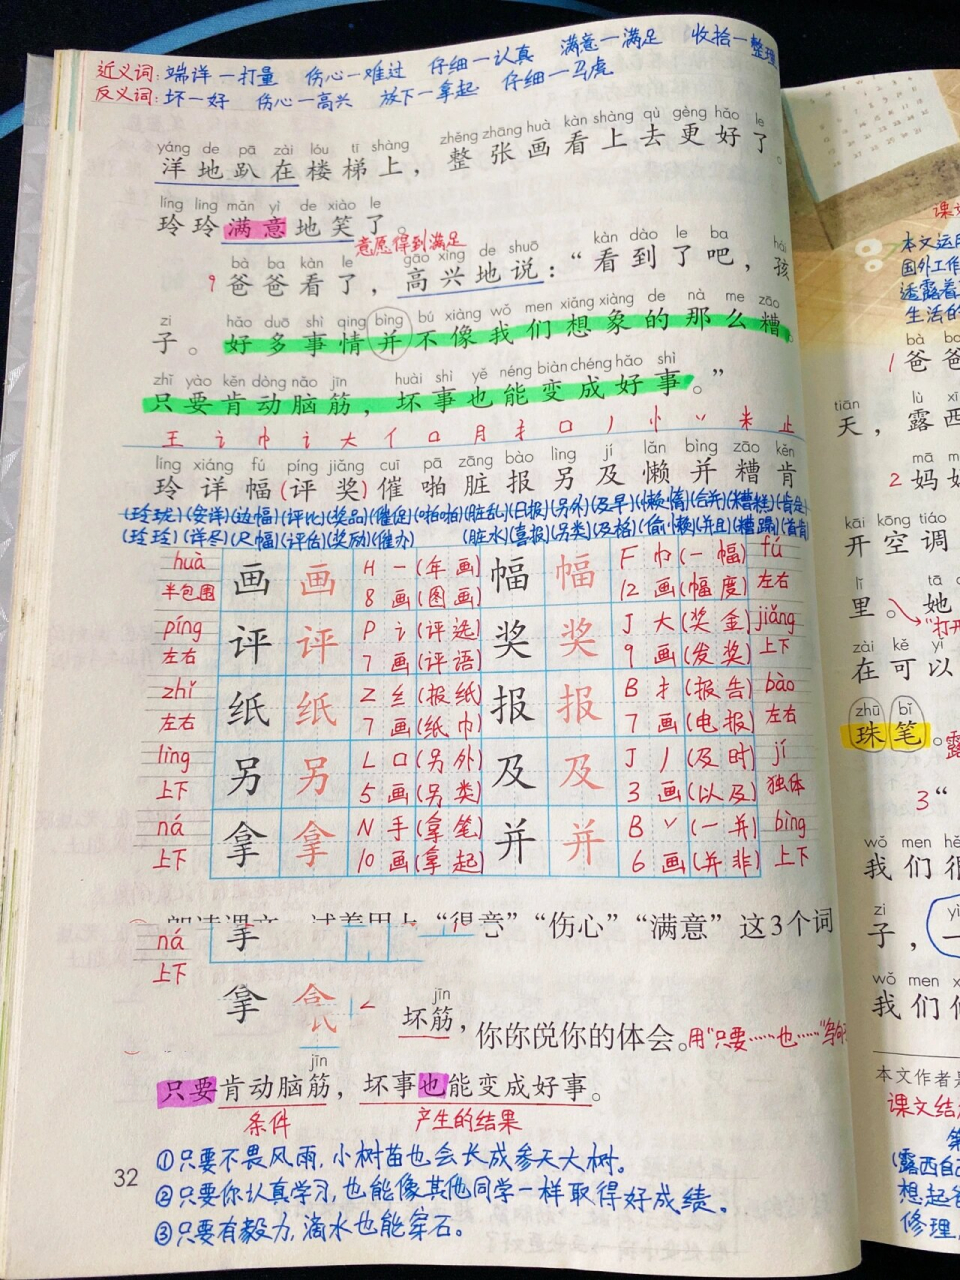 近义词: 端详—打量 伤心—难过 仔细—认真 满意—满足 收拾—整理
反义词: 坏—好 伤心—高兴 放下—拿起 仔细—马虎
yáng de pā zài lóu tī shàng zhěng zhāng huà kàn shàng qù gèng hǎo le
洋地趴在楼梯上，整张画看上去更好了。
líng ling mǎn yì de xiào le
玲玲满意地笑了。
意愿得到满足
bà ba kàn le gāo xìng de shuō kàn dào le ba hái
9 爸爸看了，高兴地说：“看到了吧，孩
zi hǎo duō shì qing bìng bú xiàng wǒ men xiǎng xiàng de nà me zāo
子。好多事情并不像我们想象的那么糟。
zhǐ yào kěn dòng nǎo jīn huài shì yě néng biàn chéng hǎo shì
只要肯动脑筋，坏事也能变成好事。”
王 讠 巾 讠 大 亻 口 月 扌 口 丿 忄 丷 米 止
líng xiáng fú píng jiǎng cuī pā zāng bào lìng jí lǎn bìng zāo kěn
玲详幅(评奖)催啪脏报另及懒并糟肯
(玲珑)(安详)(边幅)(评比)(奖品)(催促)(啪啪)(脏乱)(日报)(另外)(及早)(懒惰)(合并)(糟糕)(肯定)
(玲玲)(详尽)(尺幅)(评估)(奖励)(催办) (脏水)(喜报)(另类)(及格)(偷懒)(并且)(糟蹋)(首肯)
huà 画 画 H 一 (年画) 幅 幅 F 巾 (一幅) fú
半包围 8画 (图画) 12画 (幅度) 左右
píng 评 评 P 讠 (评选) 奖 奖 J 大 (奖金) jiǎng
左右 7画 (评语) 9画 (发奖) 上下
zhǐ 纸 纸 Z 纟 (报纸) 报 报 B 扌 (报告) bào
左右 7画 (纸巾) 7画 (电报) 左右
lìng 另 另 L 口 (另外) 及 及 J 丿 (及时) jí
上下 5画 (另类) 3画 (以及) 独体
ná 拿 拿 N 手 (拿笔) 并 并 B 丷 (一并) bìng
上下 10画 (拿起) 6画 (并非) 上下
“伤心”“满意”这3个词
ná
上下
拿
jīn
坏筋，
你的体会。用“只要……也……”
jīn
只要肯动脑筋，坏事也能变成好事。
条件 产生的结果
①只要不畏风雨,小树苗也会长成参天大树。
②只要你认真学习,也能像其他同学一样取得好成绩。
③只要有毅力,滴水也能穿石。
32
本文运用
国外工作
透露着
生活的
bà ba
1 爸爸
tiān lù xī
天，露西
mā m
2 妈妈
kāi kōng tiáo
开空调
lǐ tā
里。她
“打开
zài kě yǐ
在可以
zhū bǐ
珠笔。
3“
wǒ men hě
我们很
zi yì
子，一
wǒ men x
我们
本文作者是
课文结
第
(露西自己
想起爸
修理,